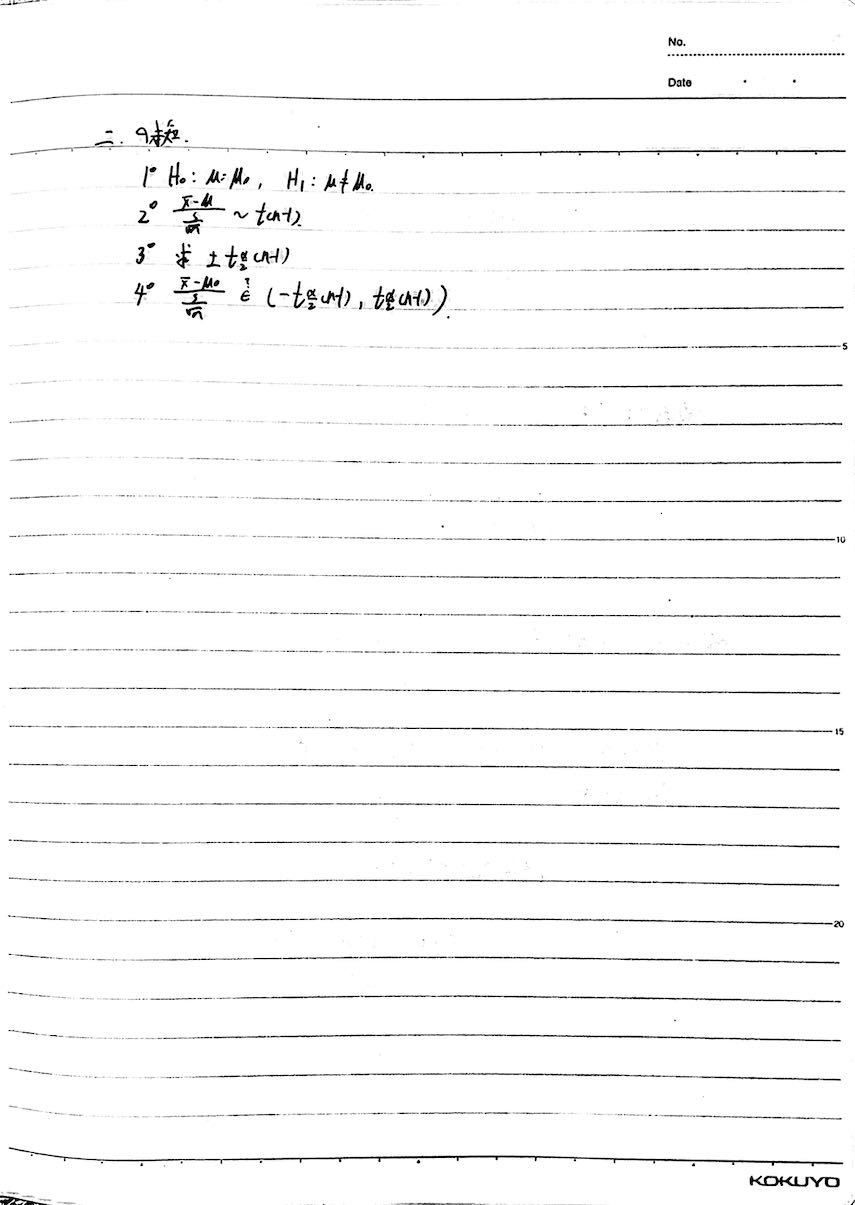 No.
Date
二.
1° H₀: μ=μ₀, H₁: μ≠μ₀.
2° (x̄-μ)/(s/√n) ~ t(n-1).
3° 求 ± t_{α/2}(n-1)
4° (x̄-μ₀)/(s/√n) ∈? (-t_{α/2}(n-1), t_{α/2}(n-1)).
5
10
15
20
KOKUYO